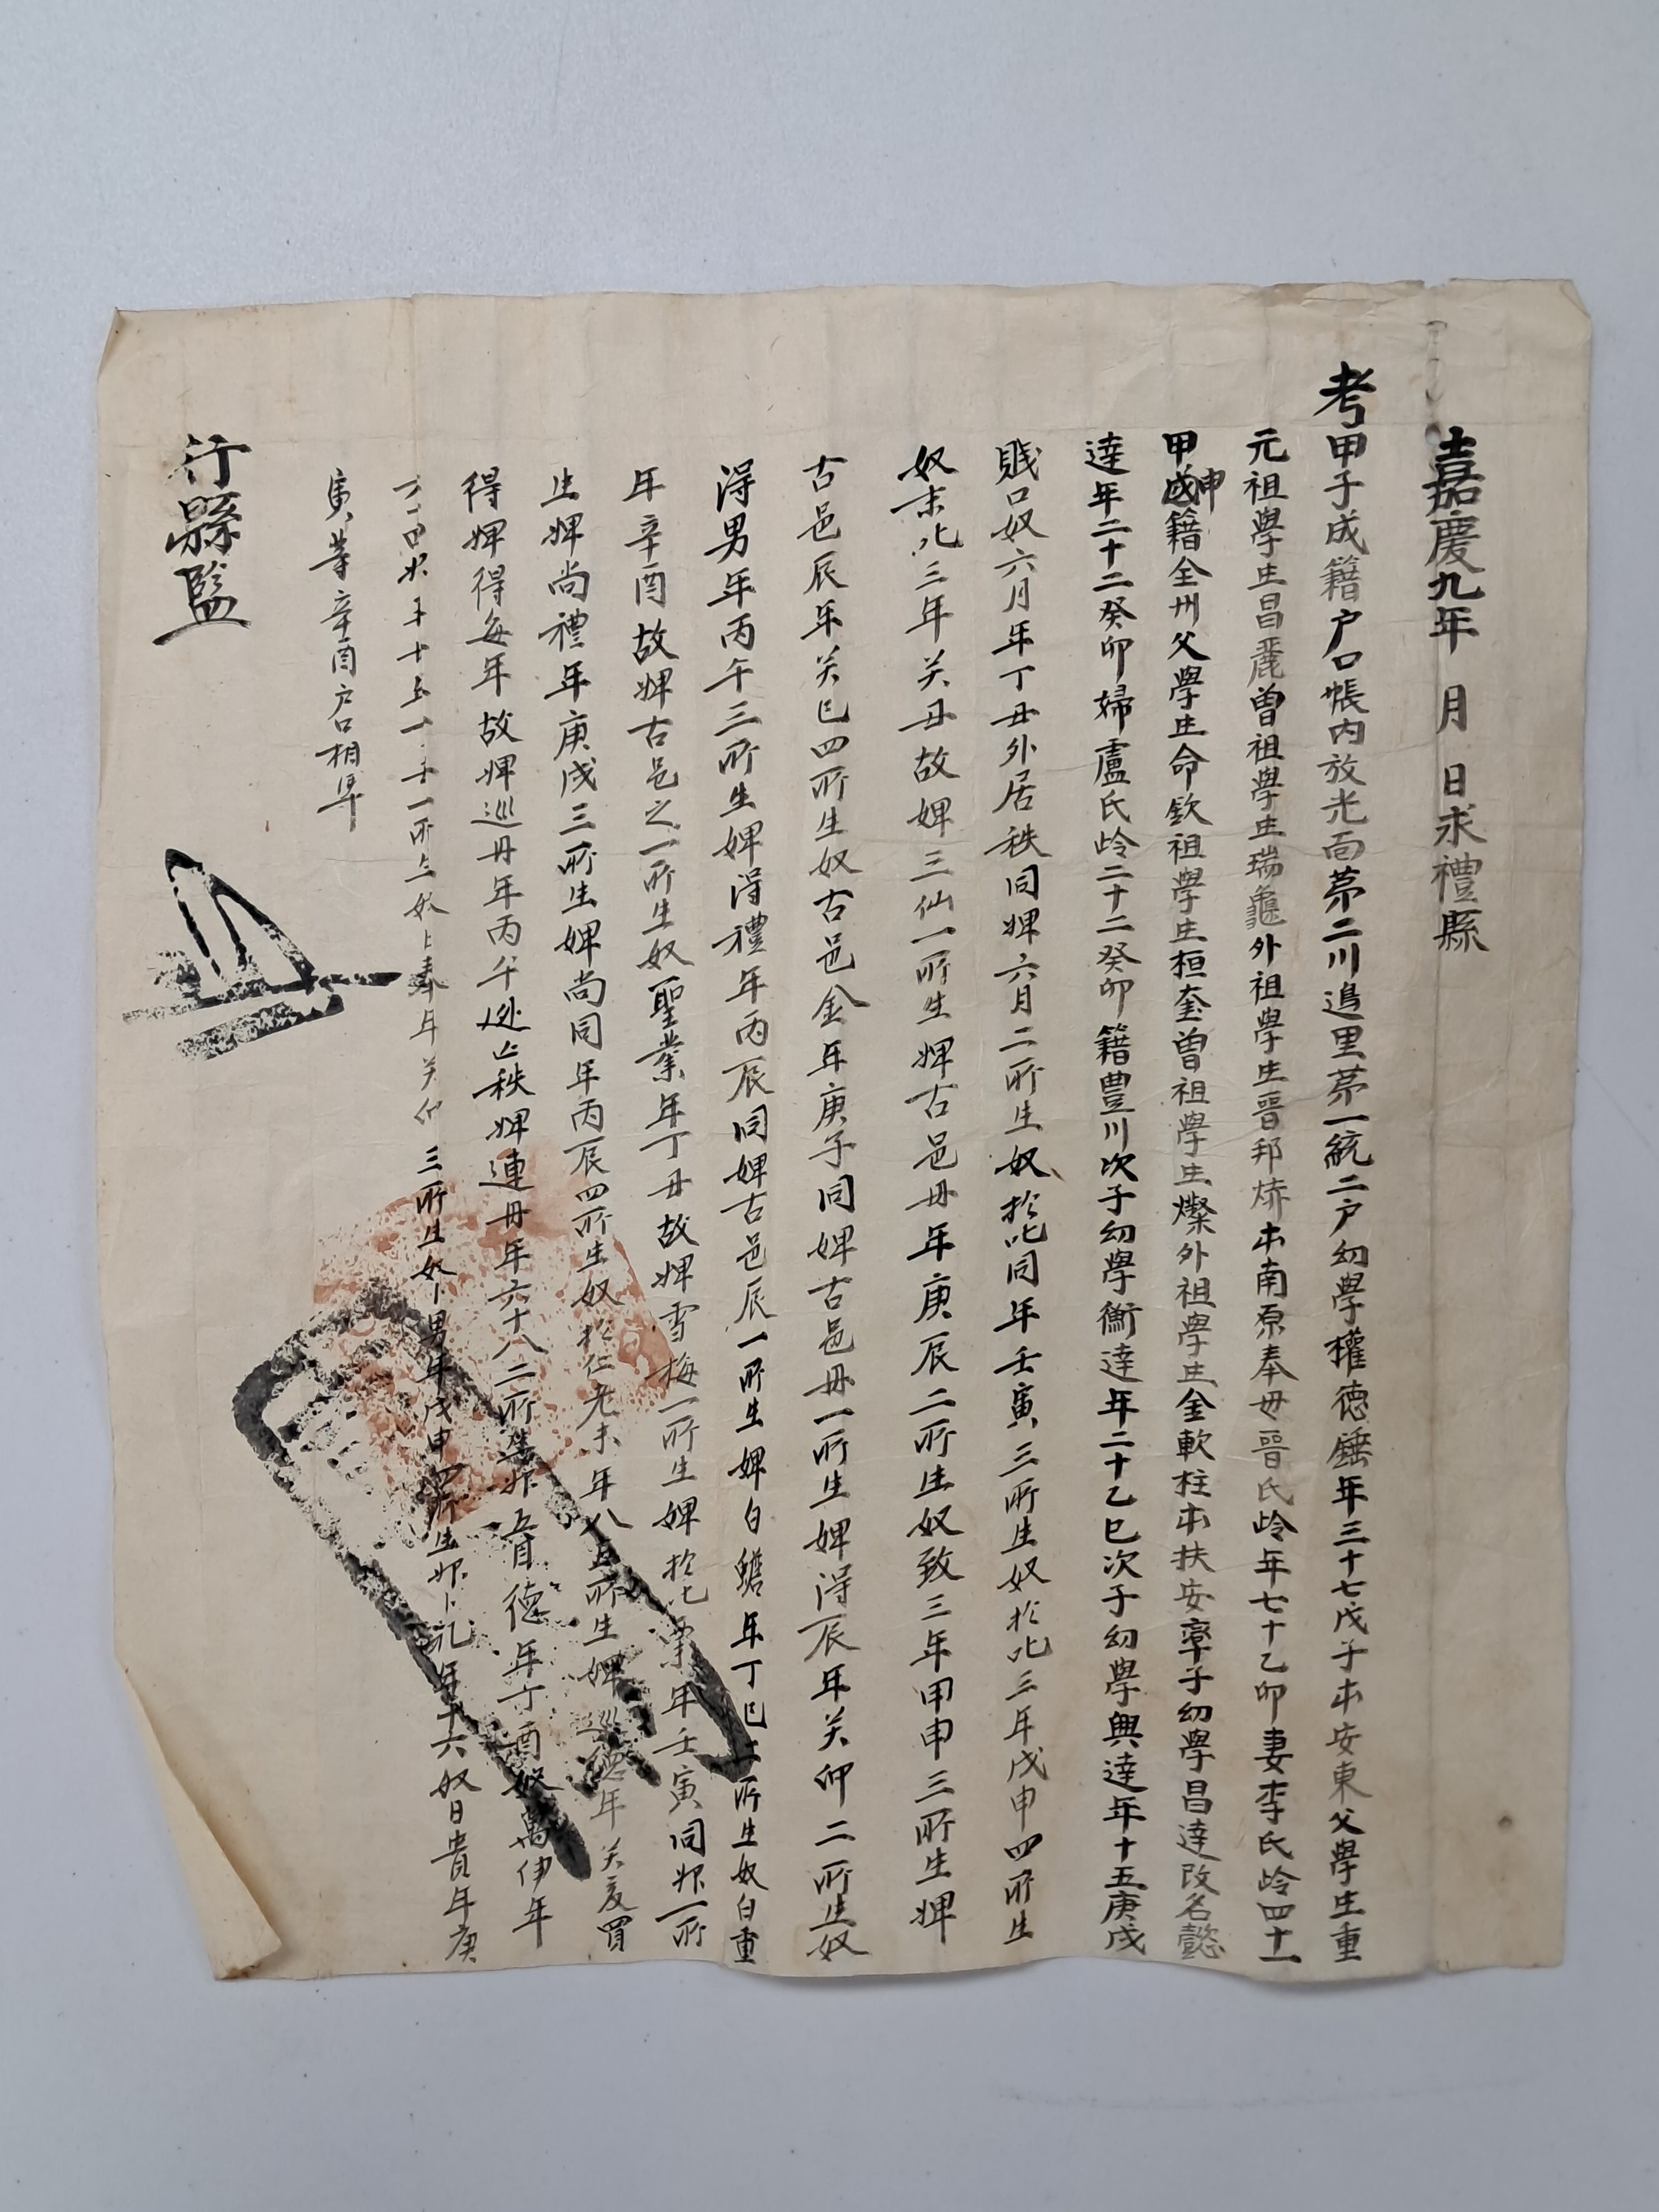 嘉慶九年 月 日求禮縣
考甲子成籍户口帳内放光面苐二川邊里苐一統二户幼學權德 年三十七戊子本安東父學生重
元祖學生昌麗曽祖學生瑞龜外祖學生晋邦 本南原奉母晋氏岭年七十乙卯妻李氏岭四十一
甲申籍全州父學生命欽祖學生桓奎曽祖學生燦外祖學生金軟柱本扶安率子幼學昌達改名懿
達年二十二癸卯婦盧氏岭二十二癸卯籍豊川次子幼學衡達年二十乙巳次子幼學興達年十五庚戌
賎口奴六月年丁丑外居秩同婢六月二所生奴 同年壬寅三所生奴 三年戊申四所生
奴 三年关丑故婢三仙一所生婢古邑母年庚辰二所生奴致三年甲申三所生婢
古邑辰年关巳四所生奴古邑金年庚子同婢古邑母一所生婢淂辰年关卯二所生奴
淂男年丙午三所生婢淂禮年丙辰同婢古邑辰一所生婢白蟾年丁巳二所生奴白重
年辛酉故婢古邑之一所生奴聖業年丁丑故婢雪梅一所生婢 年壬寅同婢一所
生婢尚禮年庚戌三所生婢尚同年丙辰四所生奴 年八五所生婢巡德年 買
得婢得每年故婢巡丹年丙午逃亡秩婢連丹年六十八二所生婢五月德年丁酉奴萬 年
年十五 一所生奴 奉年关卯三所生奴卜男年戊申四所生婢卜礼年十六奴日貴年庚
寅等辛酉户口相凖
行縣監